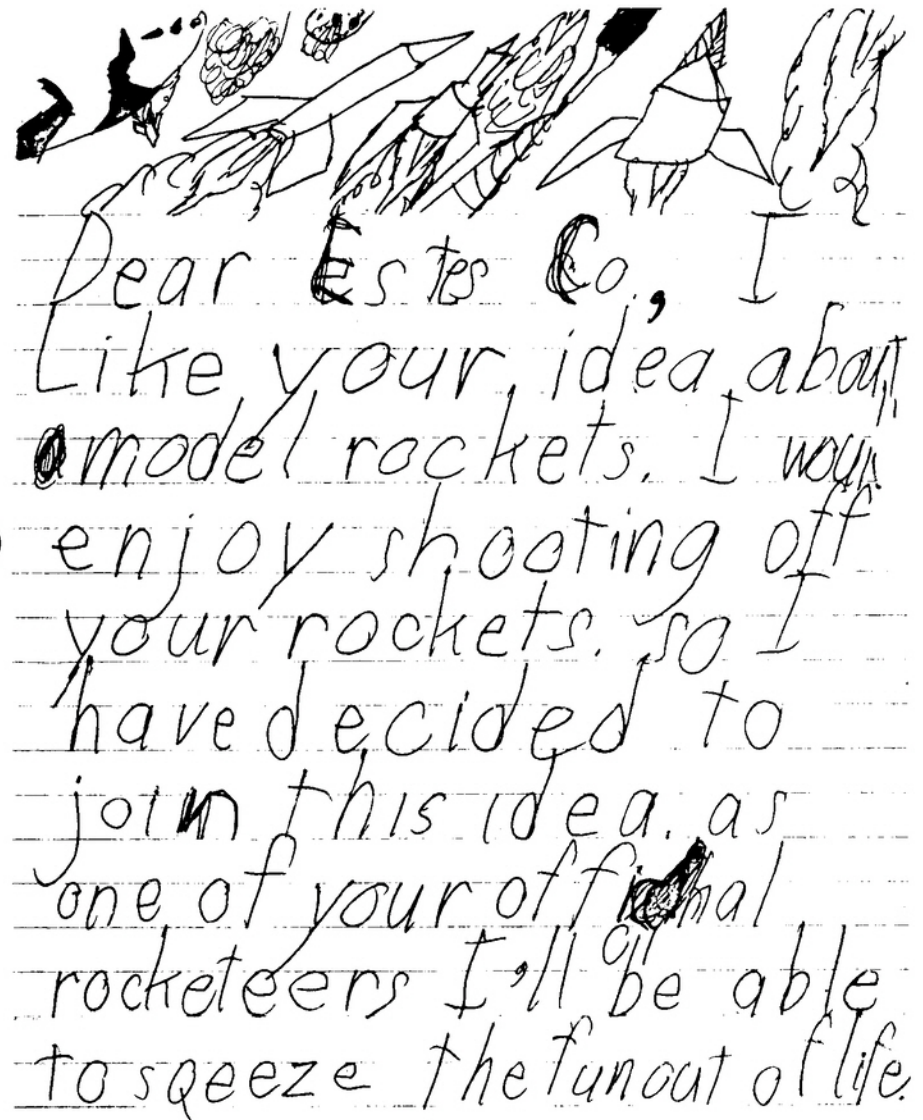 Dear Estes Co., I
Like your idea about
model rockets. I woud
enjoy shooting off
your rockets. so I
have decided to
join this idea. as
one of your offi nal
rocketeers I'll be able
to sqeeze the fun out of life.